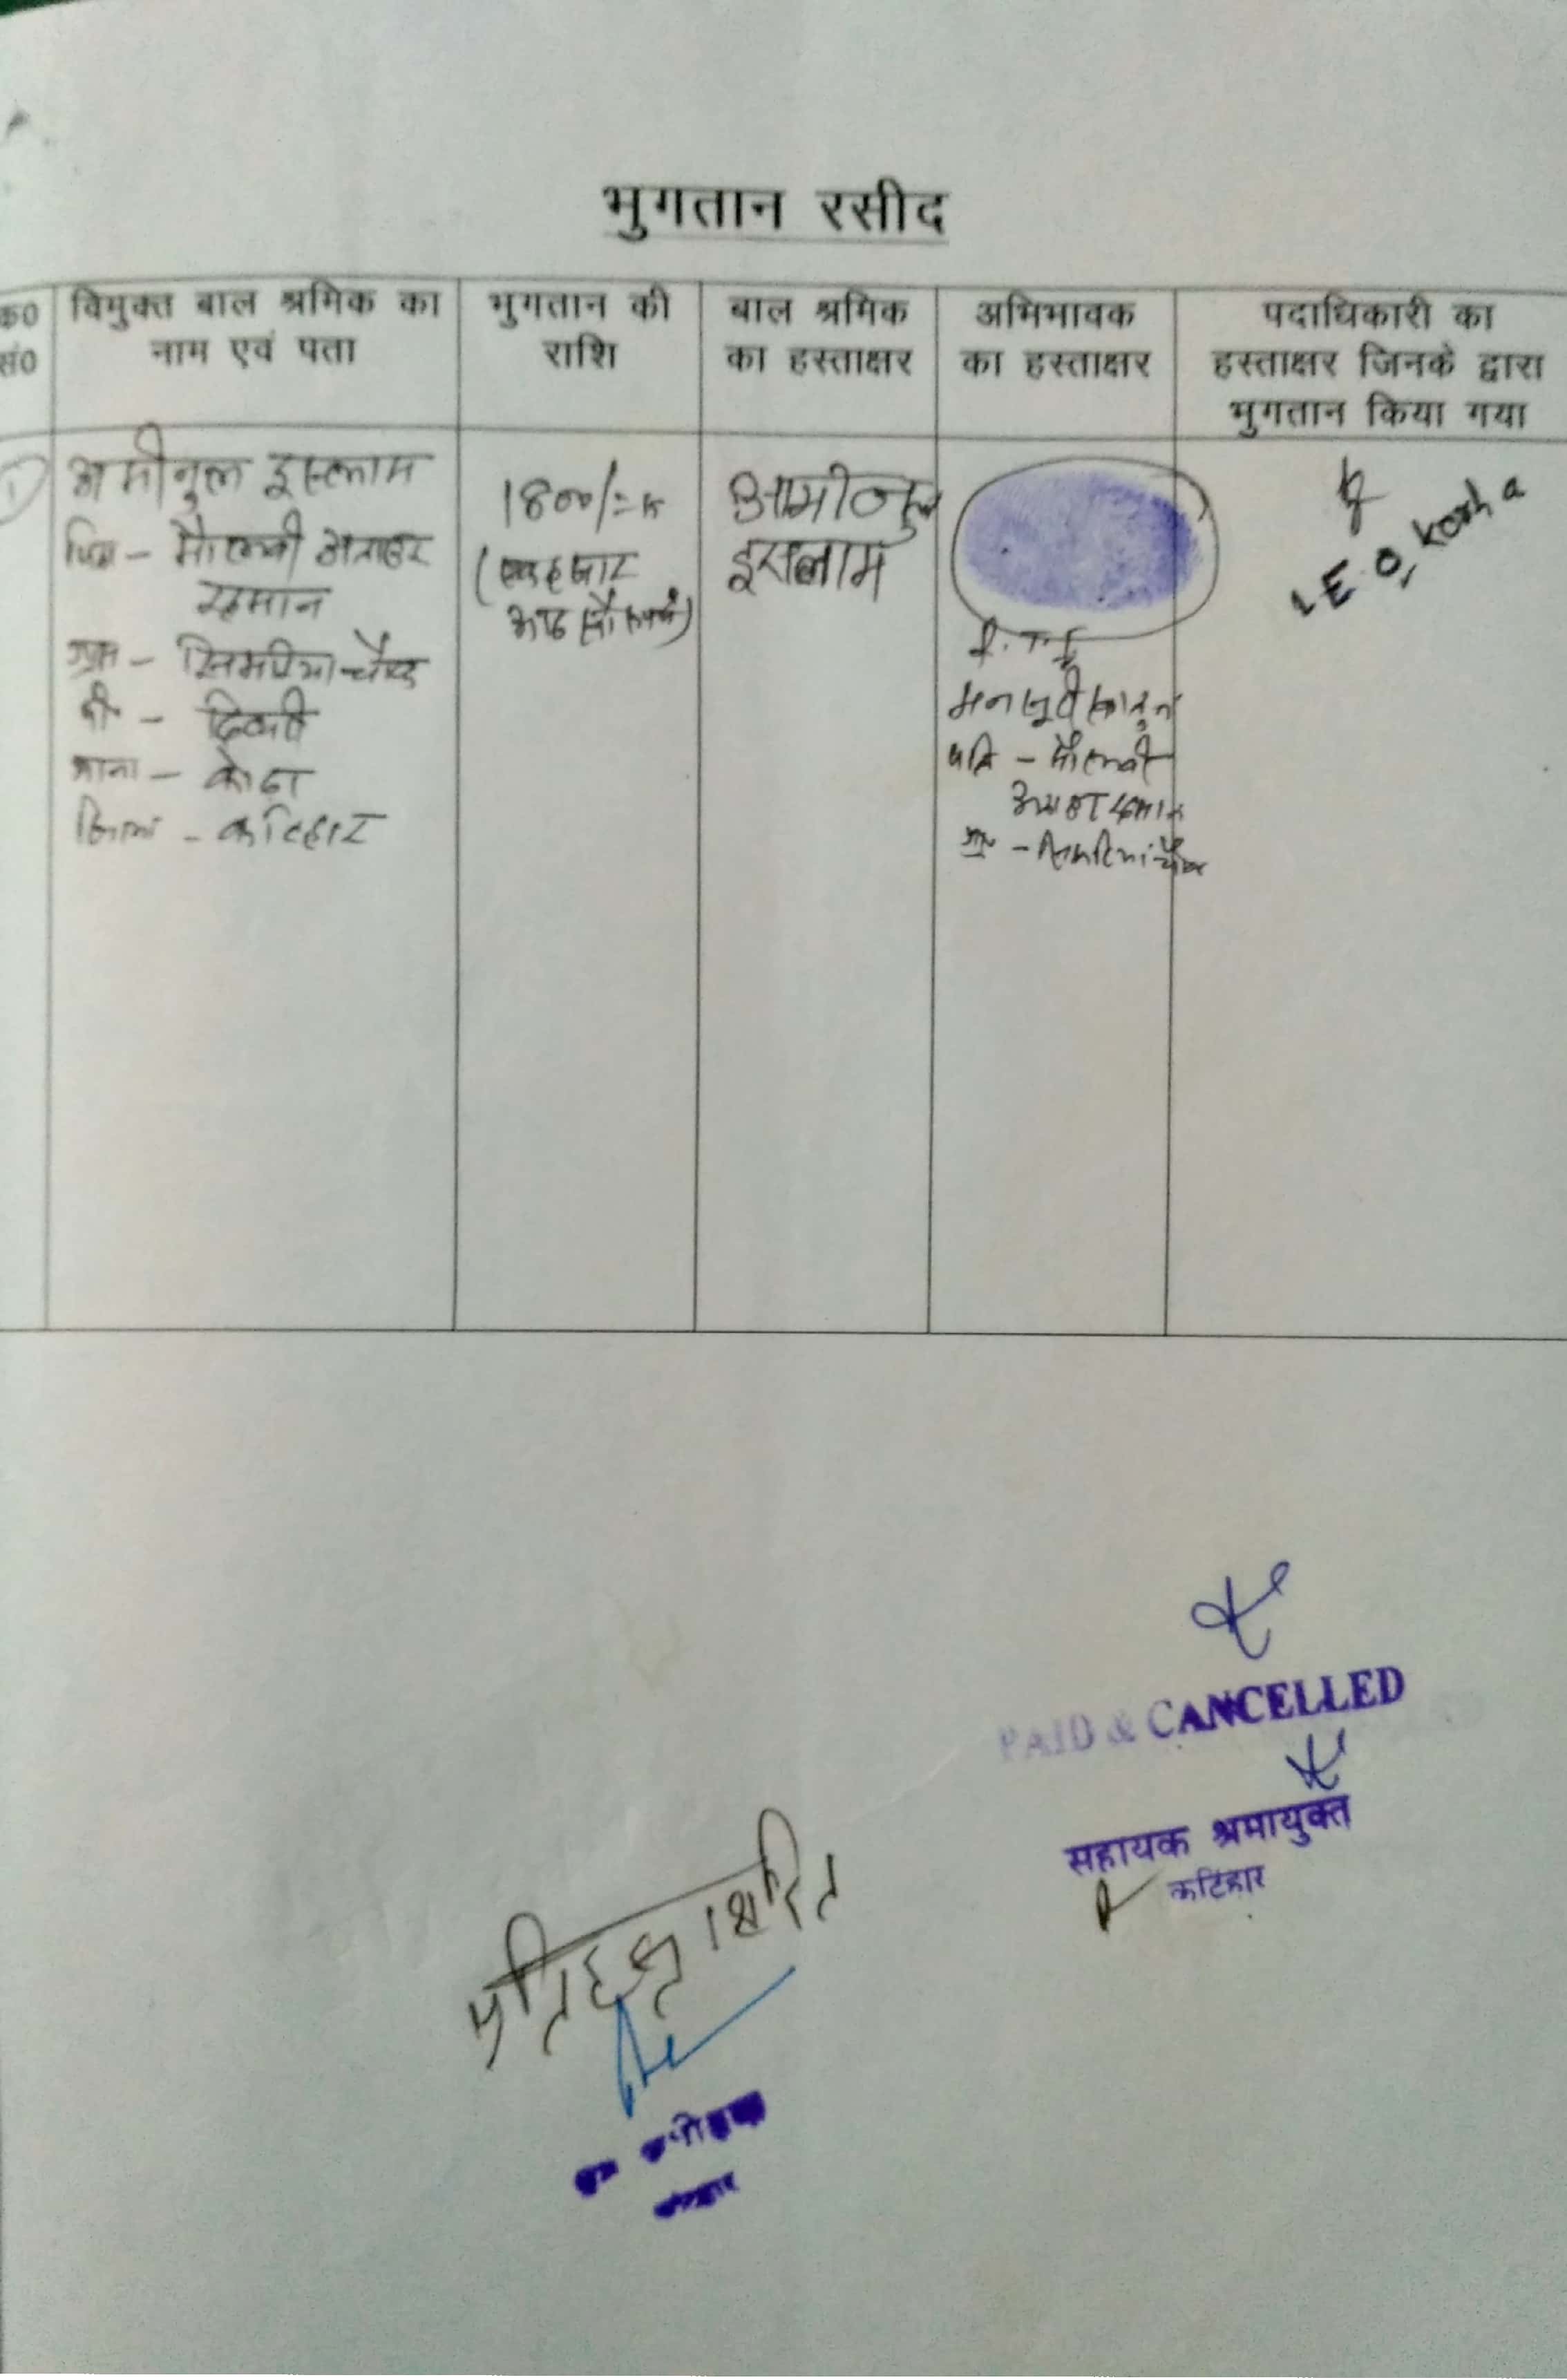 भुगतान रसीद
क्र0 सं0
विमुक्त बाल श्रमिक का
नाम एवं पता
भुगतान की
राशि
बाल श्रमिक
का हस्ताक्षर
अभिभावक
का हस्ताक्षर
पदाधिकारी का
हस्ताक्षर जिनके द्वारा
भुगतान किया गया
1
अमीनुल इस्लाम
पिता - मौलवी
रहमान
ग्राम - सिमरिया
पो -
थाना - कोढ़ा
जिला - कटिहार
1800/=
(एक हजार
आठ सौ रूपये)
आमीनुल
इसलाम
पति - मौलवी
ग्राम - सिमरिया
L E O, Korha
PAID & CANCELLED
सहायक श्रमायुक्त
कटिहार